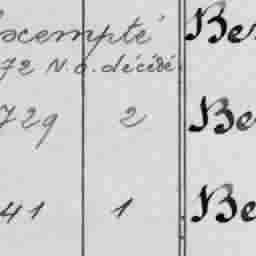 exempté Be
72 N.a. décédé
729 2 Be
41 1 Be